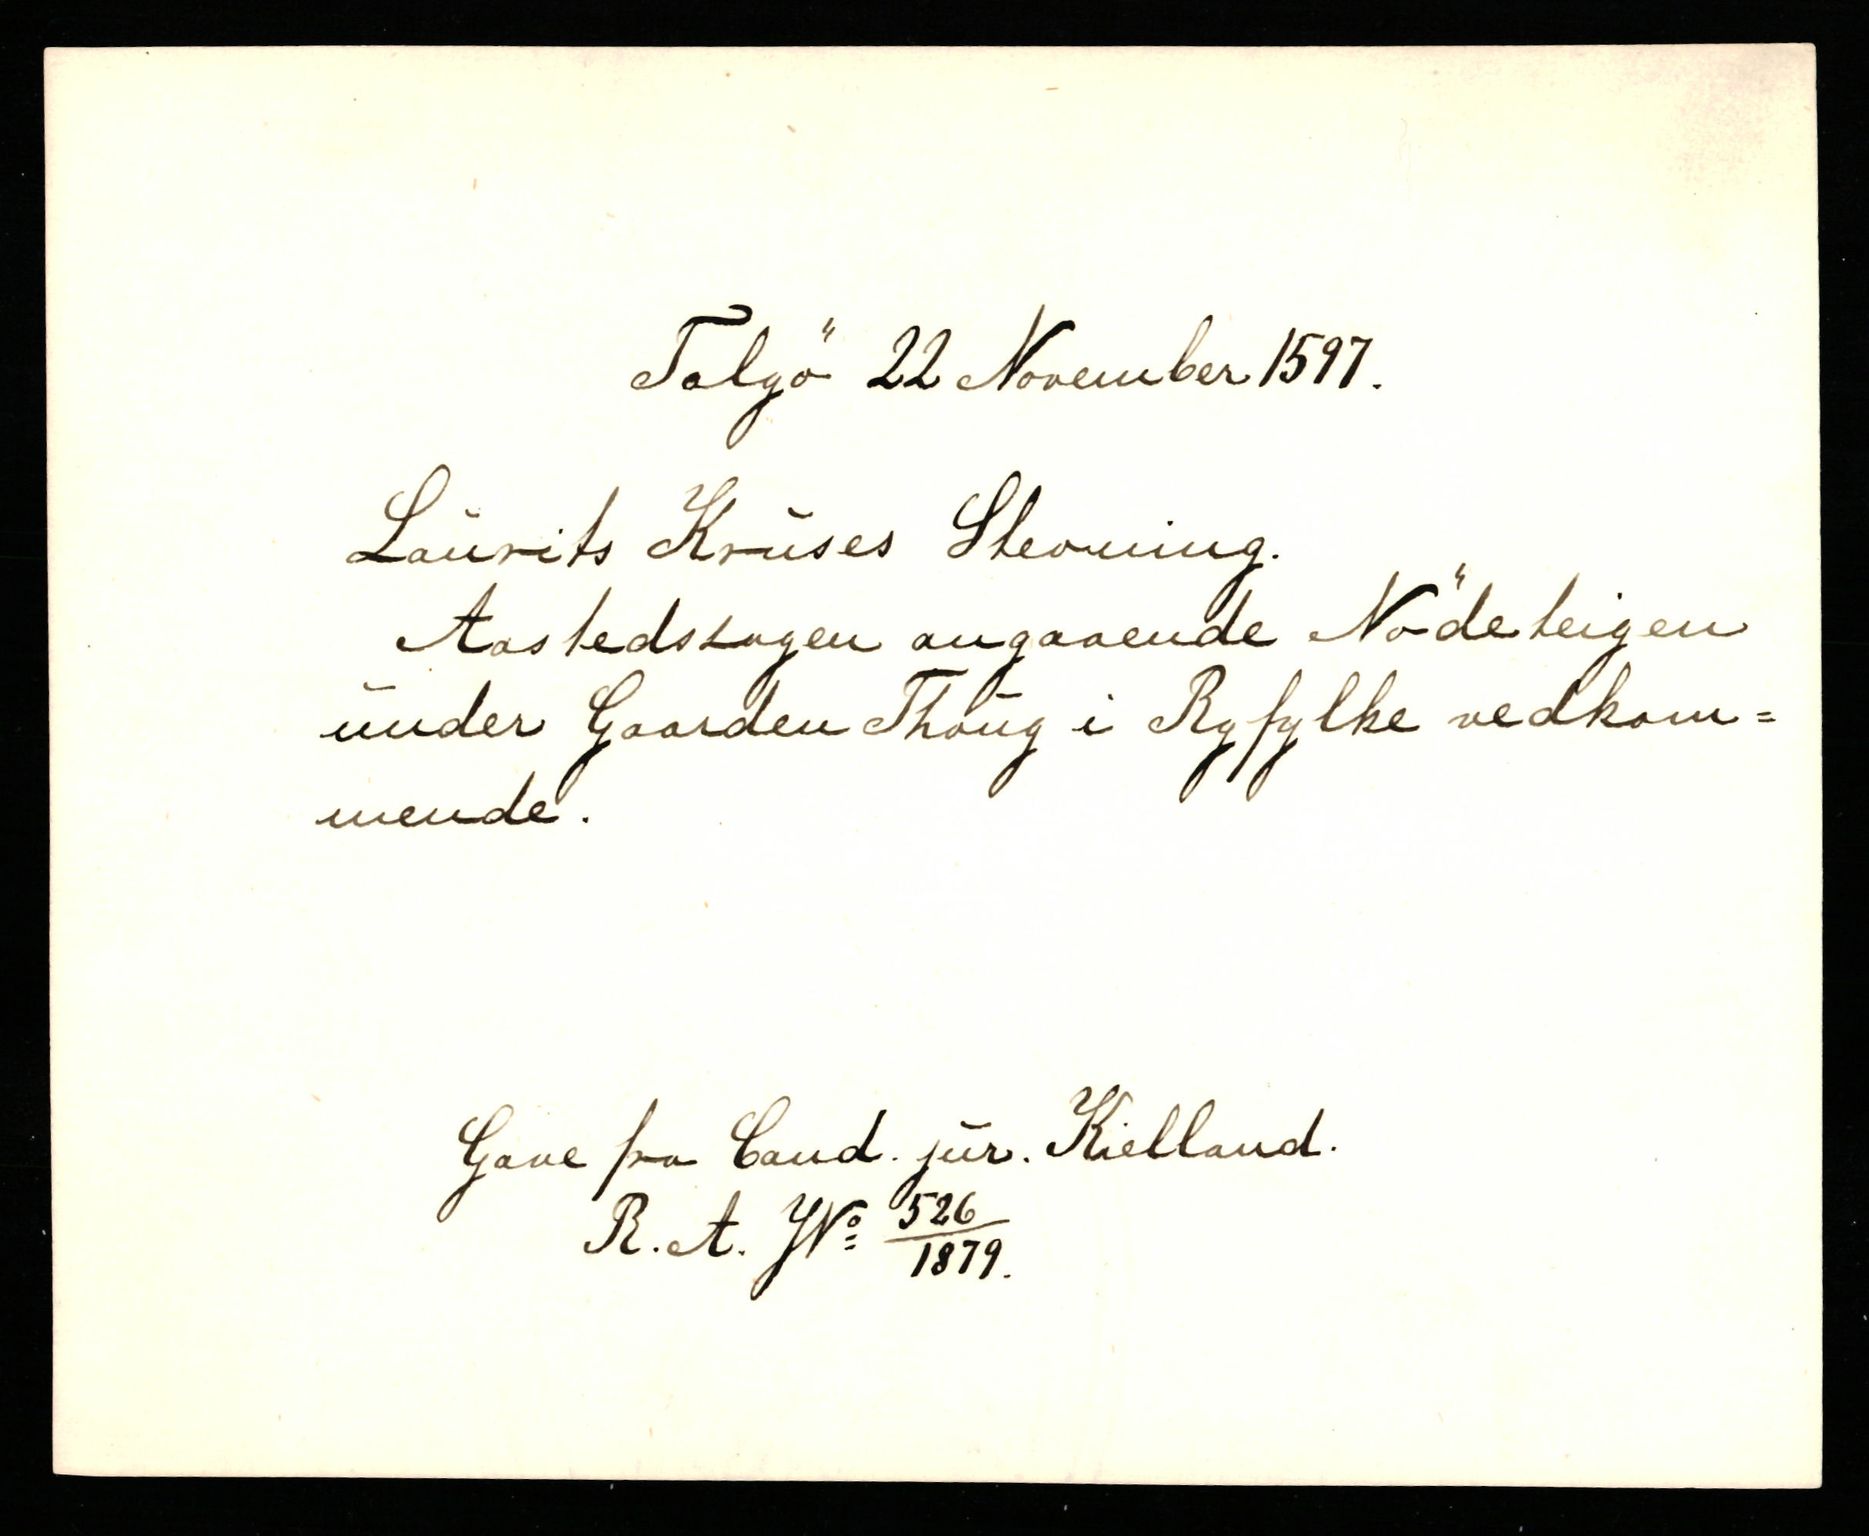 Talgö 22 November 1597.
Laurits Kruses Stevning.
Aastedssagen angaaende Nödeteigen
under Gaarden Thoug i Ryfylke vedkom=
mende.
Gave fra Cand. jur. Kielland.
R. A. JNo 526
1879.